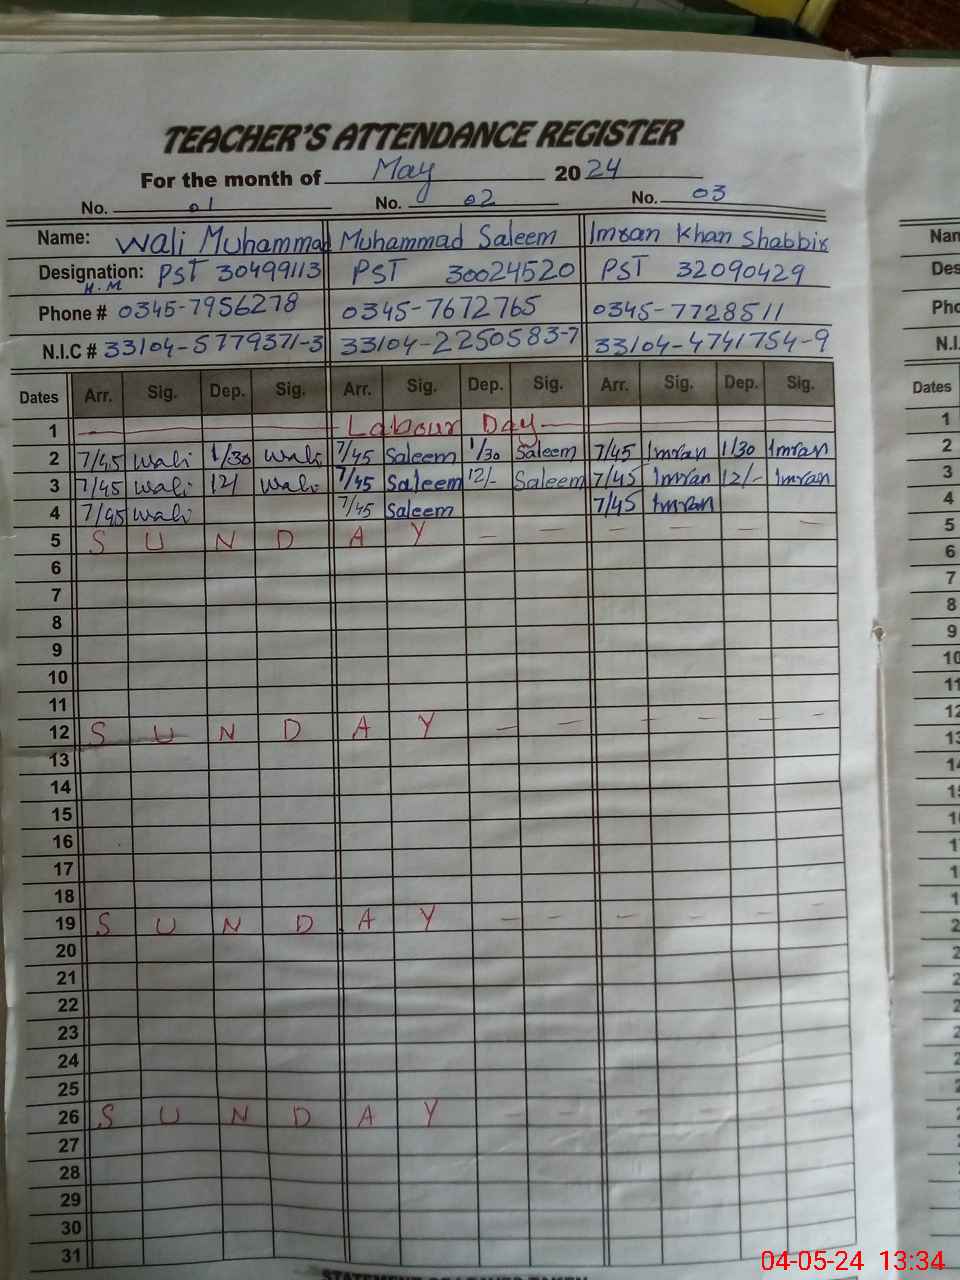 TEACHER'S ATTENDANCE REGISTER
For the month of May 2024
No. 01 No. 02 No. 03
Name: Wali Muhammad Muhammad Saleem Imran Khan Shabbir
Designation: PST 30499113 PST 30024520 PST 32090429
H.M
Phone # 0345-7956278 0345-7672765 0345-7728511
N.I.C # 33104-5779371-3 33104-2250583-7 33104-4741754-9
Dates Arr. Sig. Dep. Sig. Arr. Sig. Dep. Sig. Arr. Sig. Dep. Sig.
1 Labour Day
2 7/45 Wali 1/30 Wali 7/45 Saleem 1/30 Saleem 7/45 Imran 1/30 Imran
3 7/45 Wali 12/ Wali 7/45 Saleem 12/- Saleem 7/45 Imran 12/- Imran
4 7/45 Wali 7/45 Saleem 7/45 Imran
5 S U N D A Y - - - - - -
6
7
8
9
10
11
12 S U N D A Y - - - - - -
13
14
15
16
17
18
19 S U N D A Y - - - - - -
20
21
22
23
24
25
26 S U N D A Y - - - - - -
27
28
29
30
31
Dates
1
2
3
4
5
6
7
8
9
10
11
12
13
04-05-24 13:34